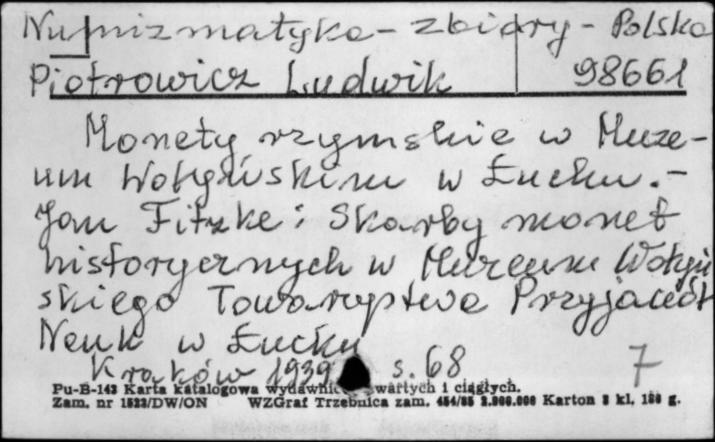 Numizmatyka - zbiory - Polska
Piotrowicz Ludwik 98661
Monety rzymskie w Muze-
um Wołyńskim w Łucku. -
Jan Fitzke: Skarby monet
historycznych w Muzeum Wołyń
skiego Towarzystwa Przyjaciół
Nauk w Łucku
Kraków 1939 s. 68 7
Pu-B-143 Karta katalogowa wydawnictw zwartych i ciągłych.
Zam. nr 1523/DW/ON WZGraf Trzebnica zam. 454/85 2.000.000 Karton 3 kl. 180 g.